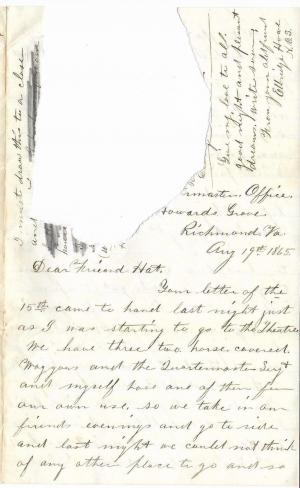 rmasters Office
Howards Grove
Richmond Va
Aug 19th 1865.
Dear Friend Hat.
Your letter of the
15th came to hand last night just
as I was starting to go to the Theatre
We have three two horse covered
Waggons and the Quartermaster Sergt
and myself have one of them for
our own use, so we take in our
friends evenings and go to ride
and last night we could not think
of any other place to go and so
I must draw this to a close
and
Give my love to all.
good night and pleasant
dreams. Write soon
From your old friend